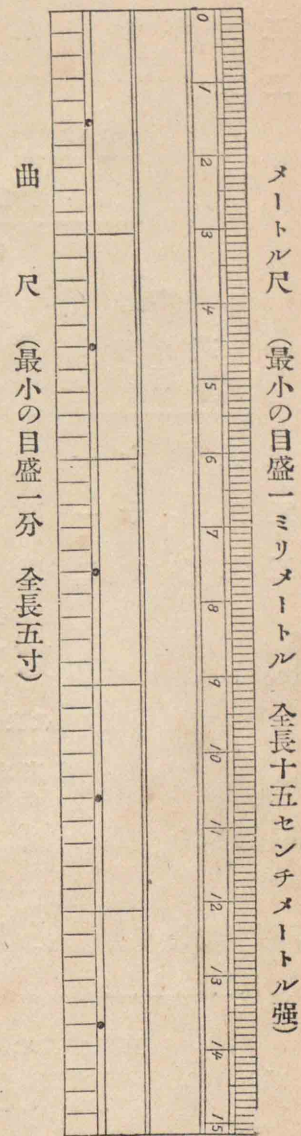 メートル尺 (最小の目盛一ミリメートル 全長十五センチメートル强)
0 1 2 3 4 5 6 7 8 9 10 11 12 13 14 15
曲尺 (最小の目盛一分 全長五寸)